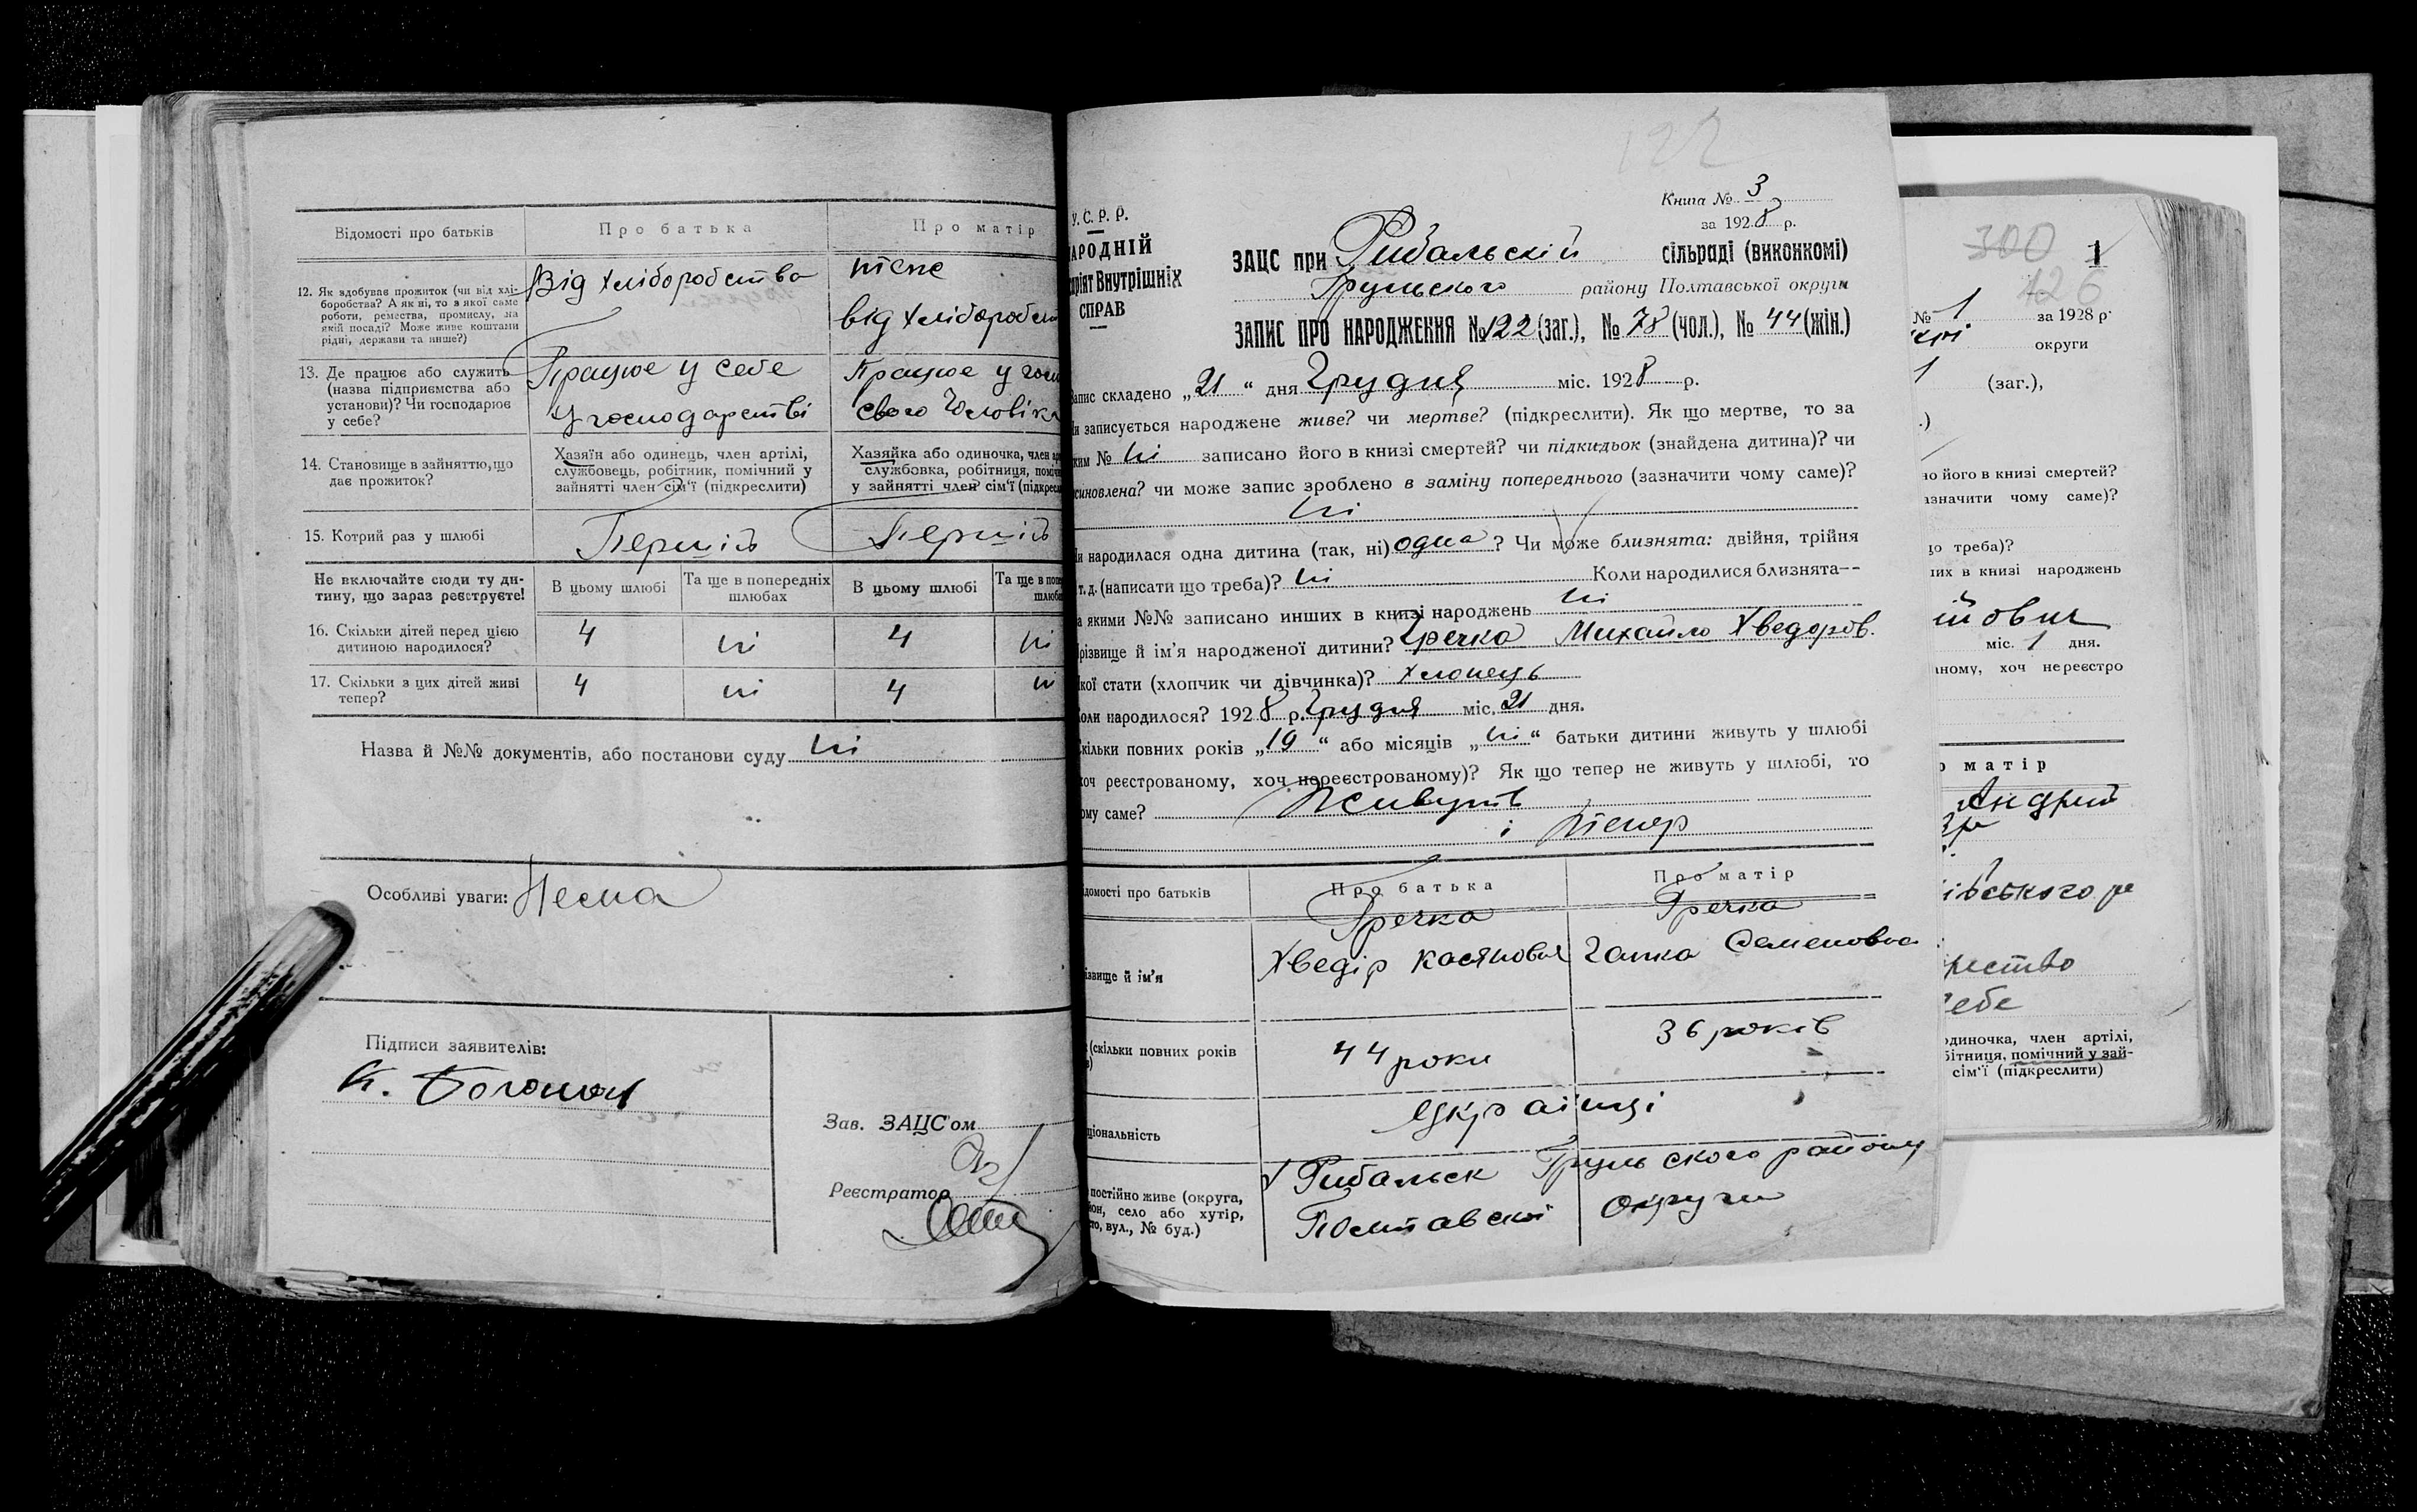 Відомості про батьків
Про батька
Про матір
12. Як здобуває прожиток (чи від хлі-
боробства? А як ні, то з якої саме
роботи, ремества, промислу, на
якій посаді? Може живе коштами
рідні, держави та инше?)
Від хліборобства
теж
від хліборобст
13. Де працює або служить
(назва підприємства або
установи)? Чи господарює
у себе?
Працює у себе
у господарстві
Працює у госп
свого Чоловіка
14. Становище в зайняттю, що
дає прожиток?
Хазяїн або одинець, член артілі,
службовець, робітник, помічний у
зайнятті член сім'ї (підкреслити)
Хазяйка або одиночка, член ар
службовка, робітниця, поміч
у зайнятті член сім'ї (підкресл
15. Котрий раз у шлюбі
Перший
Перший
Не включайте сюди ту ди-
тину, що зараз реєструєте!
В цьому шлюбі
Та ще в попередніх
шлюбах
В цьому шлюбі
Та ще в попе
шлюба
16. Скільки дітей перед цією
дитиною народилося?
4 ні 4 ні
17. Скільки з цих дітей живі
тепер?
4 ні 4 ні
Назва й №№ документів, або постанови суду ні
Особливі уваги: Нема
Підписи заявителів:
Зав. ЗАЦС'ом
Реєстратор
122
Книга № 3
за 1928 р.
У.С.Р.Р.
НАРОДНІЙ
аріят Внутрішніх
СПРАВ
ЗАЦС при Рибальскій сільраді (виконкомі)
Грунского району Полтавської округи
ЗАПИС ПРО НАРОДЖЕННЯ № 122 (заг.), № 78 (чол.), № 44 (жін.)
Запис складено „21“ дня Грудня міс. 1928 р.
Чи записується народжене живе? чи мертве? (підкреслити). Як що мертве, то за
яким № ні записано його в книзі смертей? чи підкидьок (знайдена дитина)? чи
синовлена? чи може запис зроблено в заміну попереднього (зазначити чому саме)?
ні
Чи народилася одна дитина (так, ні) одна? Чи може близнята: двійня, трійня
і т. д. (написати що треба)? ні Коли народилися близнята--
за якими №№ записано инших в книзі народжень ні
Прізвище й ім'я народженої дитини? Гречка Михайло Хведоров.
Якої стати (хлопчик чи дівчинка)? хлопець
Коли народилося? 1928 р. Грудня міс. 21 дня.
Скільки повних років „19“ або місяців „ні“ батьки дитини живуть у шлюбі
(хоч реєстрованому, хоч нереєстрованому)? Як що тепер не живуть у шлюбі, то
чому саме? Живуть
і тепер
ідомості про батьків
Про батька
Про матір
різвище й ім'я
Гречка
Хведір Касянович
Гречка
Ганна Семеновна
(скільки повних років
44 роки
36 років
ціональність
Українці
постійно живе (округа,
йон, село або хутір,
то, вул., № буд.)
Рибальск Грунського району
Полтавскої округи
300
1
126
№ 1 за 1928 р.
округи
1 (заг.),
но його в книзі смертей?
азначити чому саме)?
що треба)?
них в книзі народжень
йович
міс. 1 дня.
аному, хоч нереєстро
о матір
Андрий
ебе
одиночка, член артілі,
бітниця, помічний у зай-
сім'ї (підкреслити)